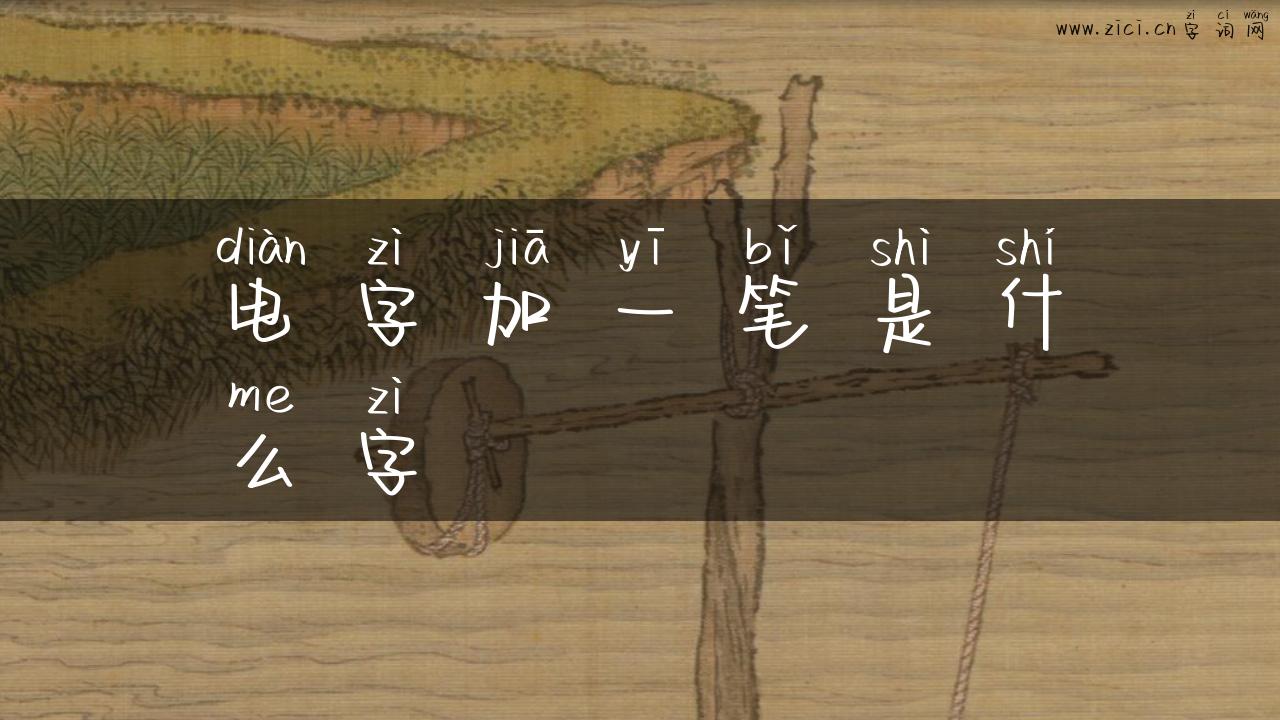 zì cí wǎng
www.zici.cn 字 词 网
diàn zì jiā yī bǐ shì shí
电 字 加 一 笔 是 什
me zì
么 字